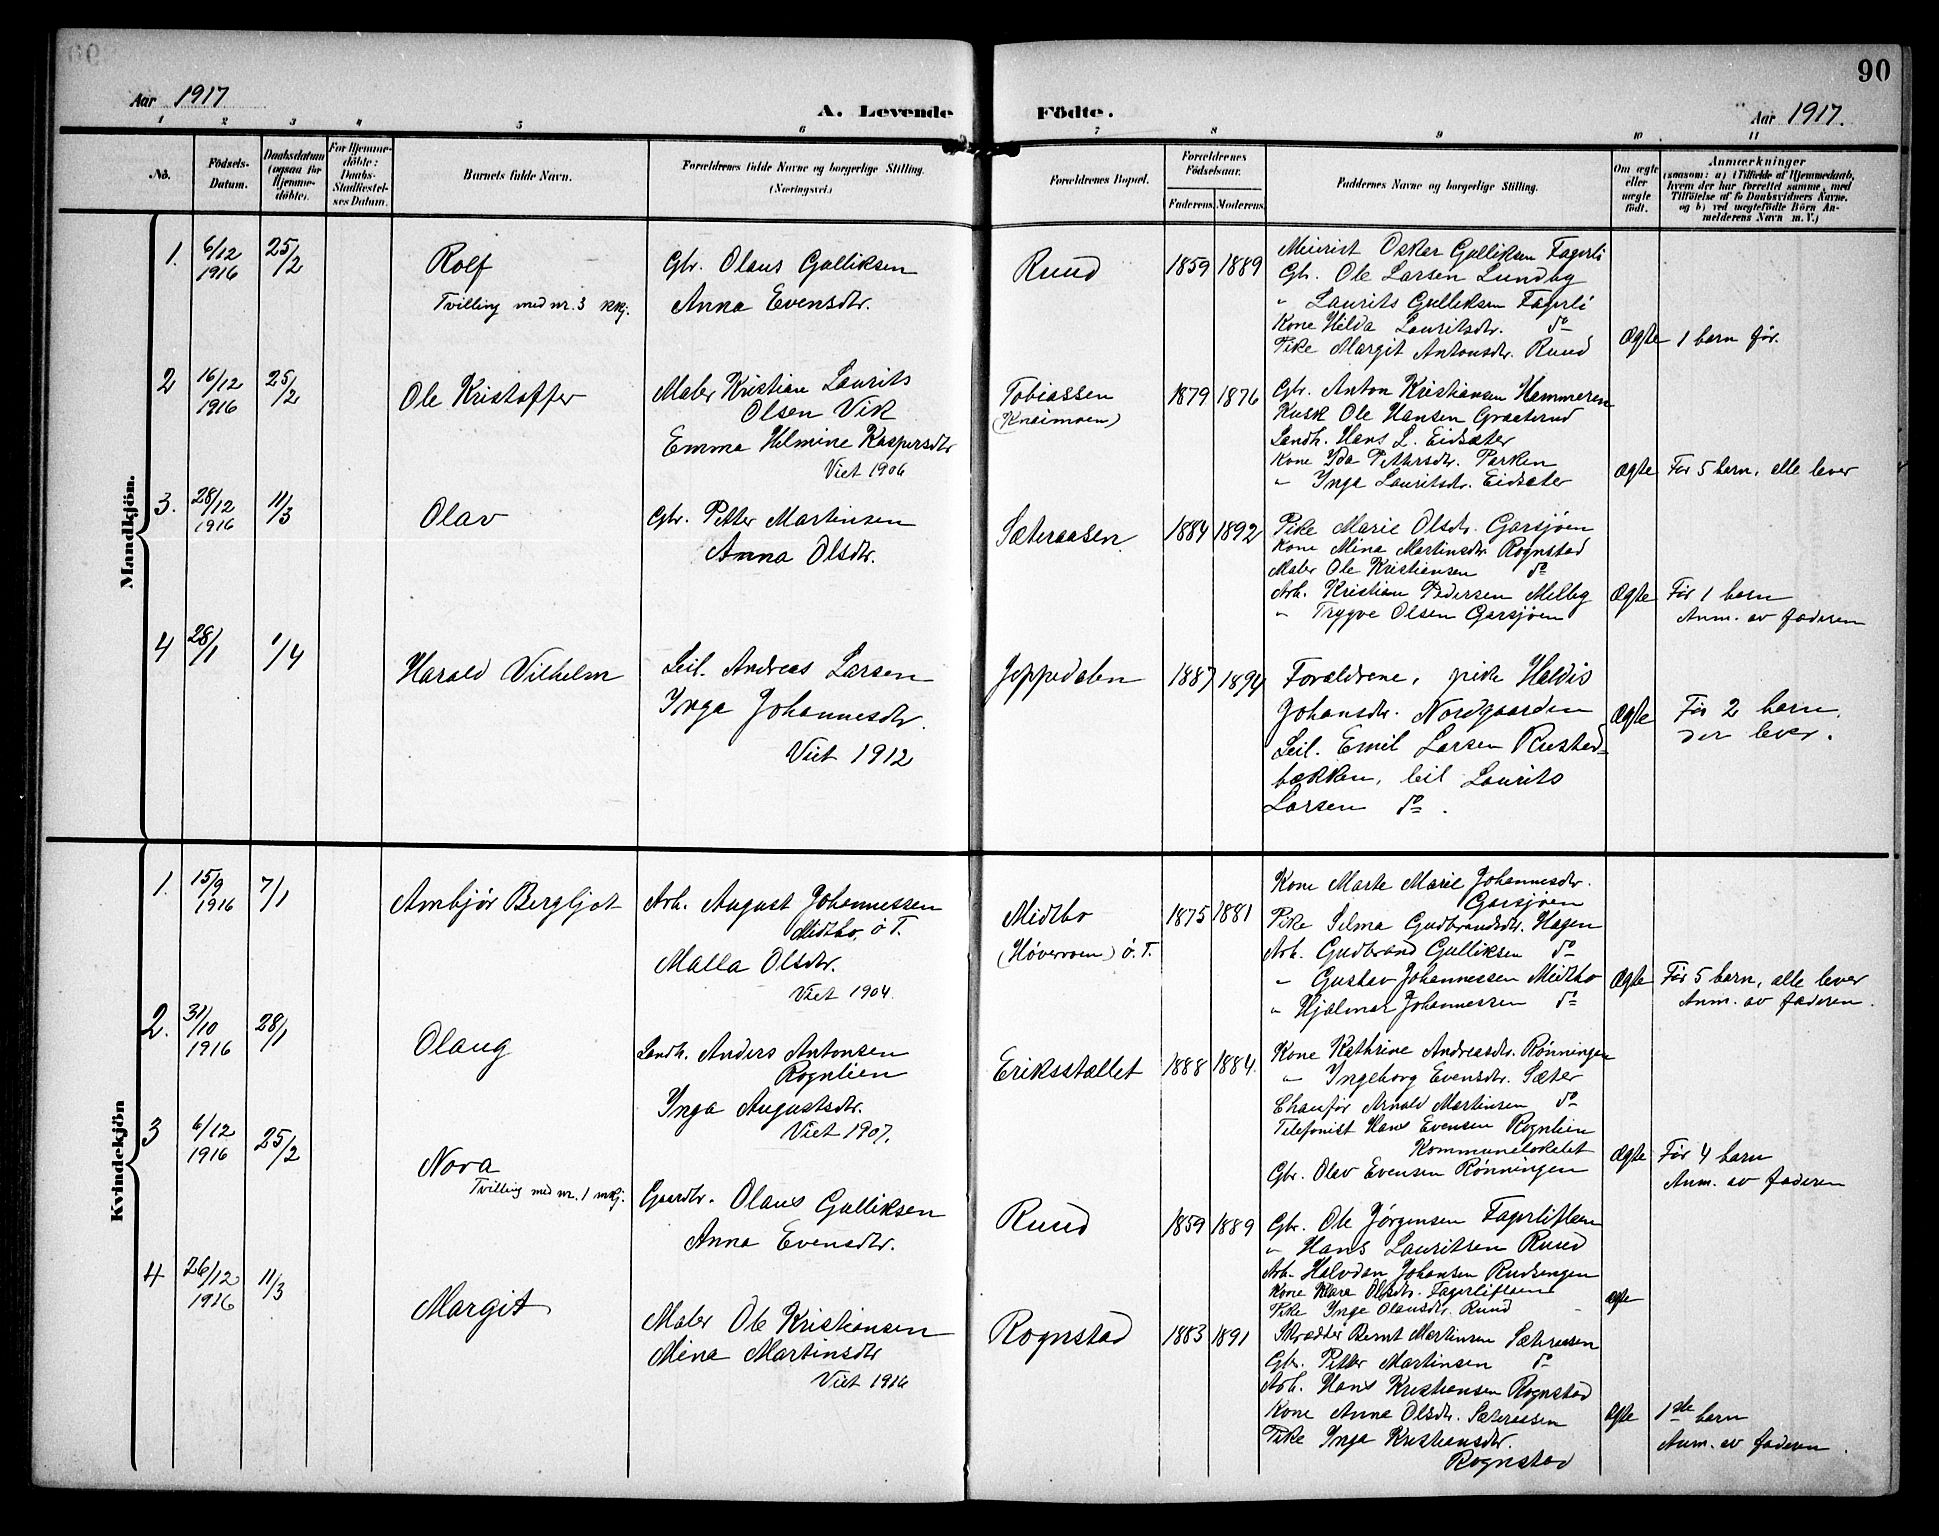 90
Aar 1917
A. Levende Födte.
Aar 1917.
1 2 3 4 5 6 7 8 9 10 11
No.
Födsels-Datum.
Daabsdatum (ogsaa for Hjemme-döbte).
For Hjemme-döbte: Daabs-Stadfæstel-ses Datum.
Barnets fulde Navn.
Forældrenes fulde Navne og borgerlige Stilling. (Næringsvei.)
Forældrenes Bopæl.
Forældrenes Födselsaar.
Faderens. Moderens.
Faddernes Navne og borgerlige Stilling.
Om ægte eller uægte födt.
Anmærkninger
(saasom: a) i Tilfælde af Hjemmedaab,
hvem der har forrettet samme, med
Tilföielse af to Daabsvidners Navne.
og b) ved uægtefödte Börn An-
melderens Navn m. V.)
Mandkjön.
1. 6/12 1916 25/2
Rolf
Tvilling med nr. 3 kkj.
Gbr. Olaus Gulliksen
Anna Evensdtr.
Ruud
1859 1889
Meierist Oskar Gulliksen Fagerli
Gb. Ole Larsen Lundby
" Laurits Gulliksen Fagerli
Kone Hilda Lauritsdtr. do
Pike Margit Antonsdtr. Ruud
Ægte
1 barn før.
2 16/12 1916 25/2
Ole Kristoffer
Maler Kristian Laurits
Olsen Vik
Emma Helmine Kaspersdtr
Viet 1906
Tobiassen
(Knaimoen)
1879 1876
Gbr. Anton Kristiansen Hammeren
Kusk Ole Hansen Græterud
Landh. Hans L. Eidsæter
Kone Ida Pettersdtr. Parken
" Inga Lauritsdtr. Eidsæter
Ægte
Før 5 barn, alle lever
3. 28/12 1916 11/3
Olav
Gbr. Petter Martinsen
Anna Olsdtr.
Sæteraasen
1884 1892
Pike Marie Olsdtr. Garsjøen
Kone Mina Martinsdtr Rognstad
Maler Ole Kristiansen do
Arb. Kristian Pedersen Melby
" Trygve Olsen Garsjøen
Ægte
Før 1 barn
Anm. av faderen
4 28/1 1/4
Harald Vilhelm
Leil. Andreas Larsen
Inga Johannesdtr.
Viet 1912
Jeppedalen
1887 1894
Forældrene, pike Haldis
Johansdtr. Nordgaarden
Leil. Emil Larsen Rustad-
bækken, leil Laurits
Larsen do.
Ægte
Før 2 barn,
der lever.
Kvindekjön
1. 15/9 1916 7/1
Arnbjør Bergljot
Arb. August Johannessen
Midtbo, ø T.
Malla Olsdtr.
Viet 1904.
Midtbo
(Høvermoen) ø. T.
1875 1881
Kone Marte Marie Johannesdtr.
Garsjøen
Pike Selma Gudbrandsdtr. Hagen
Arb. Gudbrand Gulliksen do
" Gustav Johannessen Midtbo
" Hjalmar Johannessen do
Ægte
Før 5 barn, alle lever
Anm. av faderen.
2. 31/10 1916 28/1
Olaug
Landh. Anders Antonsen
Rognlien
Inga Augustsdtr.
Viet 1907.
Eriksstallet
1888 1884.
Kone Kathrine Andreasdtr. Rønningen
" Ingeborg Evensdtr. Sæter
Chauffør Arnold Martinsen do
Telefonist Hans Evensen Rognlien
Kommunelokalet
Gbr. Olav Evensen Rønningen
Ægte
Før 4 barn
Anm. av faderen
3 6/12 1916 25/2
Nora
Tvilling med nr. 1 mkj.
Gaardbr. Olaus Gulliksen
Anna Evensdtr.
Ruud
1859 1889
Gbr. Ole Jørgensen Fagerliflaen
" Hans Lauritsen Ruud
Arb. Halvdan Johansen Rudsengen
Kone Klara Olsdtr. Fagerliflaen
Pike Inga Olausdtr. Ruud
Ægte
4 26/12 1916 11/3
Margit
Maler Ole Kristiansen
Mina Martinsdtr
Viet 1916
Rognstad
1883 1891
Skrædder Bernt Martinsen Sæteraasen
Gbr. Petter Martinsen do
Arb. Hans Kristiansen Rognstad
Kone Anna Olsdtr. Sæteraasen
Pike Inga Kristiansdtr.
Rognstad
Ægte
1ste barn
Anm. av faderen.